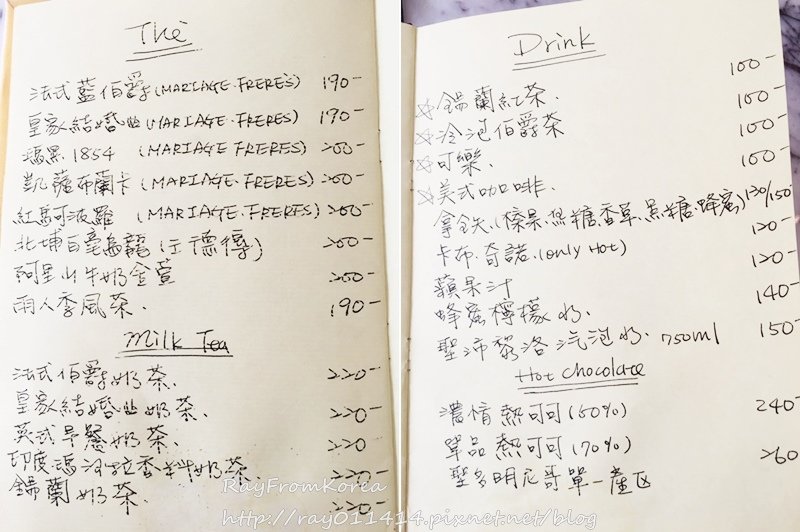 Thè
法式藍伯爵 (MARIAGE.FRERES) 190-
皇家結婚曲 (MARIAGE.FRERES) 190-
1854 (MARIAGE FRERES) 200-
凱薩布蘭卡 (MARIAGE.FRERES) 200-
紅馬可波羅 (MARIAGE.FRERES) 200-
北埔白毫烏龍 (王德傳) 200-
阿里山牛奶金萱 200-
雨人季風茶. 190-
Milk Tea
法式伯爵奶茶. 220-
皇家結婚曲奶茶. 220-
英式早餐奶茶. 220
印度瑪沙拉香料奶茶. 220-
錫蘭奶茶. 220-
Drink
☆錫蘭紅茶. 100-
☆冷泡伯爵茶 100-
☆可樂. 100-
☆美式咖啡. 100-
拿鐵.(榛果.焦糖.香草.黑糖.蜂蜜) 130/150
卡布.奇諾.(only Hot) 120-
蘋果汁 120-
蜂蜜檸檬水. 140-
聖沛黎洛汽泡水. 750ml 150-
Hot chocolate
濃情熱可可 (50%) 240-
單品熱可可 (70%) 260
聖多明尼哥單一產区
RayFromKorea
http://ray011414.pixnet.net/blog